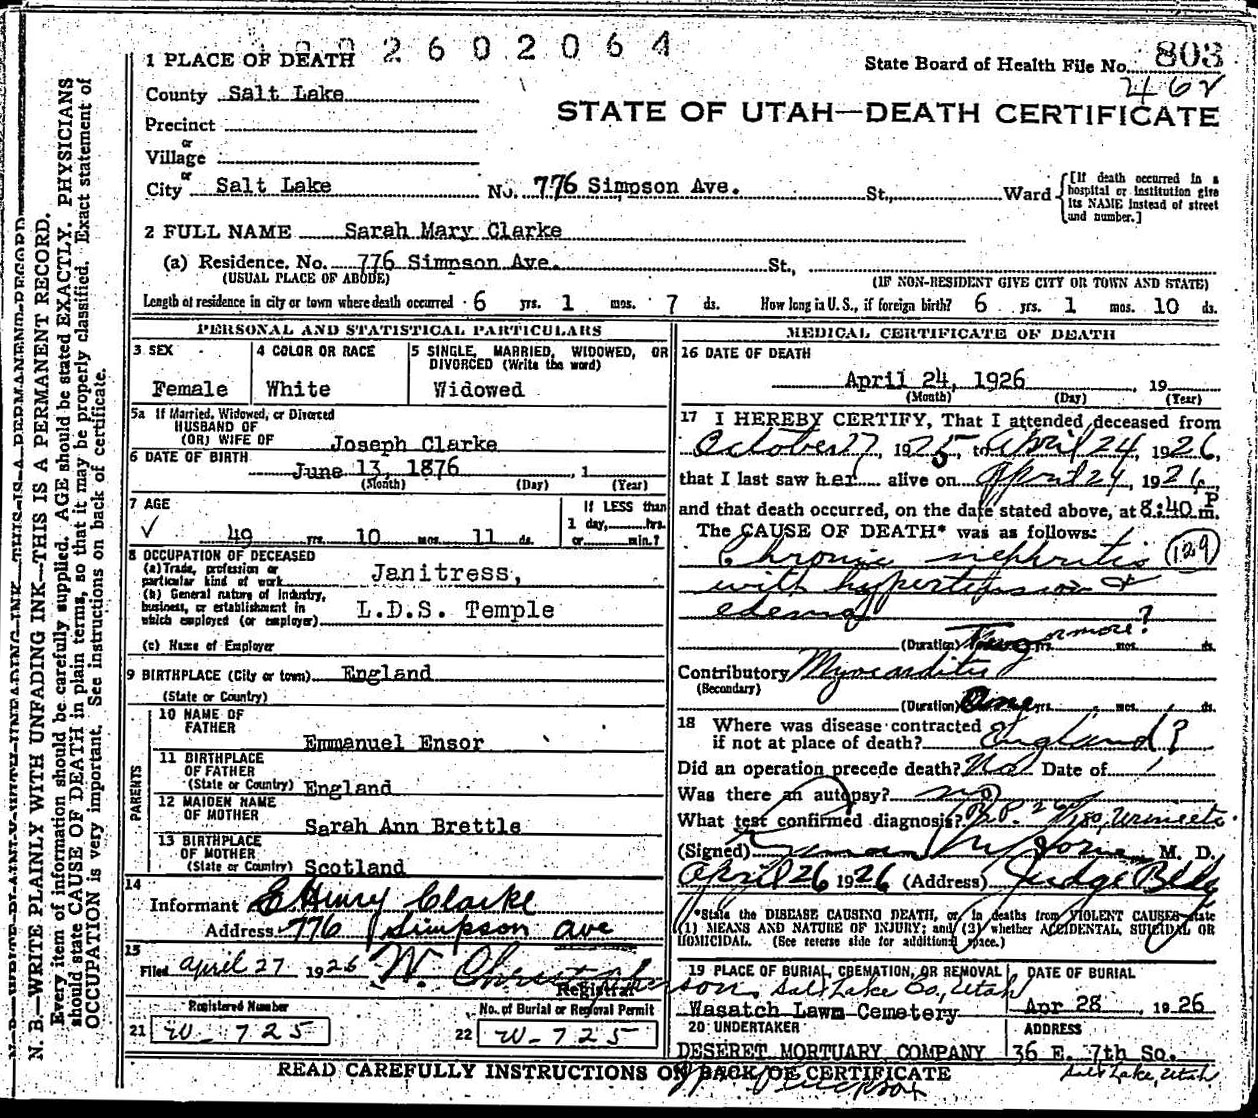 1002602064
1 PLACE OF DEATH
State Board of Health File No. 803
462
County Salt Lake
STATE OF UTAH—DEATH CERTIFICATE
Precinct
or
Village
or
City Salt Lake No. 776 Simpson Ave. St., Ward
[If death occurred in a hospital or institution give its NAME instead of street und number.]
2 FULL NAME Sarah Mary Clarke
(a) Residence. No. 776 Simpson Ave. St.,
(USUAL PLACE OF ABODE) (IF NON-RESIDENT GIVE CITY OR TOWN AND STATE)
Length of residence in city or town where death occurred 6 yrs. 1 mos. 7 ds. How long in U.S., if foreign birth? 6 yrs. 1 mos. 10 ds.
PERSONAL AND STATISTICAL PARTICULARS
3 SEX
Female
4 COLOR OR RACE
White
5 SINGLE, MARRIED, WIDOWED, OR
DIVORCED (Write the word)
Widowed
5a If Married, Widowed, or Divorced
HUSBAND OF
(OR) WIFE OF Joseph Clarke
6 DATE OF BIRTH
June 13, 1876 , 1
(Month) (Day) (Year)
7 AGE
✓ 49 yrs. 10 mos. 11 ds.
If LESS than
1 day, hrs.
or min.?
8 OCCUPATION OF DECEASED
(a) Trade, profession or
particular kind of work Janitress,
(b) General nature of industry,
business, or establishment in
which employed (or employer) L.D.S. Temple
(c) Name of Employer
9 BIRTHPLACE (City or town) England
(State or Country)
PARENTS
10 NAME OF
FATHER Emmanuel Ensor
11 BIRTHPLACE
OF FATHER
(State or Country) England
12 MAIDEN NAME
OF MOTHER Sarah Ann Brettle
13 BIRTHPLACE
OF MOTHER
(State or Country) Scotland
14
Informant E Henry Clarke
Address 776 Simpson ave
15
Filed april 27 1926 W. Christopherson
Registrar
Registered Number
21 W-725
No. of Burial or Removal Permit
22 W-725
MEDICAL CERTIFICATE OF DEATH
16 DATE OF DEATH
April 24, 1926 , 19
(Month) (Day) (Year)
17 I HEREBY CERTIFY, That I attended deceased from
October 27, 1925, to April 24, 1926,
that I last saw her alive on April 24, 1926,
and that death occurred, on the date stated above, at 8:40 P m.
The CAUSE OF DEATH* was as follows:
Chronic nephritis (129)
with hypertension &
edema
(Duration) Two or more? yrs. mos. ds.
Contributory Myocarditis
(Secondary)
(Duration) One yrs. mos. ds.
18 Where was disease contracted
if not at place of death? England?
Did an operation precede death? No Date of
Was there an autopsy? no
What test confirmed diagnosis? B.P. 260/180, Urine etc.
(Signed) M. D.
April 26 1926 (Address) Judge Bldg
*State the DISEASE CAUSING DEATH, or, in deaths from VIOLENT CAUSES state
(1) MEANS AND NATURE OF INJURY; and (2) whether ACCIDENTAL, SUICIDAL OR
HOMICIDAL. (See reverse side for additional space.)
19 PLACE OF BURIAL, CREMATION, OR REMOVAL
Salt Lake Co, Utah
Wasatch Lawn Cemetery
DATE OF BURIAL
Apr 28 , 1926
20 UNDERTAKER
DESERET MORTUARY COMPANY
ADDRESS
36 E. 7th So.
Salt Lake, Utah
READ CAREFULLY INSTRUCTIONS ON BACK OF CERTIFICATE
N. B.—WRITE PLAINLY WITH UNFADING INK—THIS IS A PERMANENT RECORD.
Every item of information should be carefully supplied. AGE should be stated EXACTLY. PHYSICIANS
should state CAUSE OF DEATH in plain terms, so that it may be properly classified. Exact statement of
OCCUPATION is very important. See instructions on back of certificate.